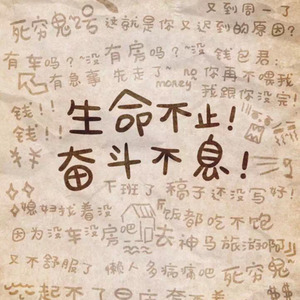 又到周一了
死穷鬼2号 这就是你又迟到的原因?
有车吗?没有房吗?没 钱包君:
有急事 先走了~ no money 你再不喂我
我跟你没完!
钱!!
钱!!
生命不止!
奋斗不息!
下班了 稿子还没写好!
媳妇找着没 饭都吃不饱
因为没车没房吧 去神马旅游啊
又不舒服了 懒人多病痛吧 死穷鬼
起不了
$$